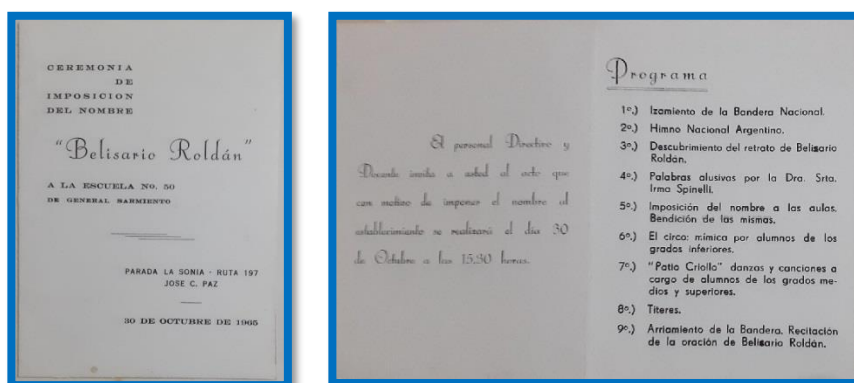 CEREMONIA
DE
IMPOSICION
DEL NOMBRE
"Belisario Roldán"
A LA ESCUELA No. 50
DE GENERAL SARMIENTO
PARADA LA SONIA - RUTA 197
JOSE C. PAZ
30 DE OCTUBRE DE 1965
El personal Directivo y
Docente invita a usted al acto que
con motivo de imponer el nombre al
establecimiento se realizará el día 30
de Octubre a las 15,30 horas.
Programa
1º.) Izamiento de la Bandera Nacional.
2º.) Himno Nacional Argentino.
3º.) Descubrimiento del retrato de Belisario
Roldán.
4º.) Palabras alusivas por la Dra. Srta.
Irma Spinelli.
5º.) Imposición del nombre a las aulas.
Bendición de las mismas.
6º.) El circo: mímica por alumnos de los
grados inferiores.
7º.) "Patio Criollo" danzas y canciones a
cargo de alumnos de los grados me-
dios y superiores.
8º.) Títeres.
9º.) Arriamiento de la Bandera. Recitación
de la oración de Belisario Roldán.